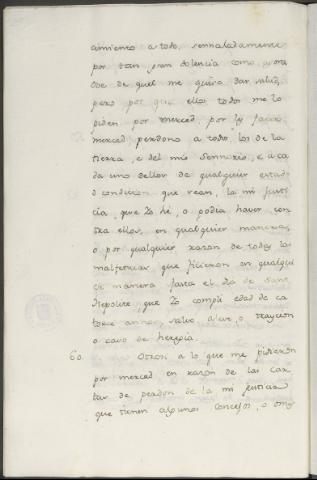 amiento a todo, sennaladamente
por tan gran dolencia como agora
de que el me quiera dar salud,
pero por que ellos todos me lo
piden por merced, por les facer
merced, perdono a todos los de la
tierra, e del mio Sennorio, e a ca
da uno dellos de qualquier estado
o condicion que sean, la mi justi
cia, que Yo hè, o podia haver con
tra ellos, en qualquier manera,
o por qualquier razon de todas las
malfetrias, que ficieron en qualqui
er manera fasta el dia de Sant
Ilepolite, que Yo compli edad de ca
torce annos, salvo aleve, o traycion
o caso de heregia.
60. Otrosi a lo que me pidieron
por merced en razon de las car
tas de perdon de la mi justicia
que tienen algunos Concejos, o omes